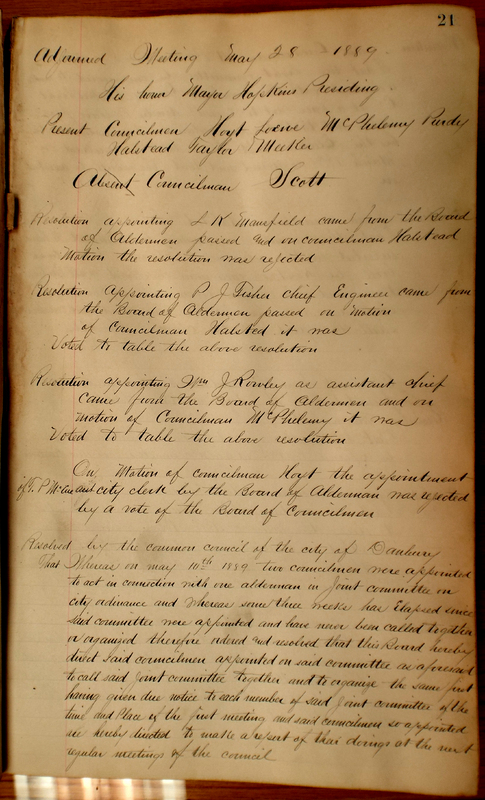 21
Adjourned Meeting May 28 1889
His honor Mayor Hopkins Presiding
Present Councilmen Hoyt Loewe McPhelemy Purdy
Halstead Taylor & Meeker
Absent Councilman Scott
Resolution appointing L K Mansfield came from the Board
of Aldermen passed and on councilman Halstead
Motion the resolution was rejected
Resolution appointing P J Fisher Chief Engineer came from
the Board of Aldermen passed on Motion
of Councilman Halsted it was
Voted to table the above resolution
Resolution appointing Wm J Rowley as assistant chief
came from the Board of Aldermen and on
motion of Councilman McPhelemy it was
Voted to table the above resolution
On Motion of councilman Hoyt the appointment
of T. P city clerk by the Board of Alderman was rejected
by a vote of the Board of Councilmen
Resolved by the common council of the city of Danbury
That Whereas on may 10th 1889 two councilmen were appointed
to act in conection with one alderman in Joint committee on
city ordinance and whereas some three weeks has Elapsed since
said committee were appointed and have never been called together
or organised therefore ordered and resolved that this Board hereby
direct said councilmen appointed on said committee as aforesaid
to call said Joint committee together and to organize the same first
having given due notice to each member of said Joint committee of the
time and Place of the first meeting and said councilmen so appointed
are hereby directed to make a report of their doings at the next
regular meetings of the council